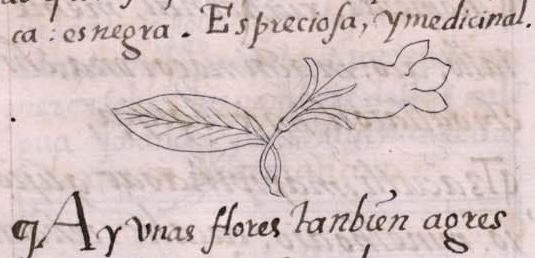 ca: es negra. Es preciosa, y medicinal.
¶ Ay vnas flores tanbien agres